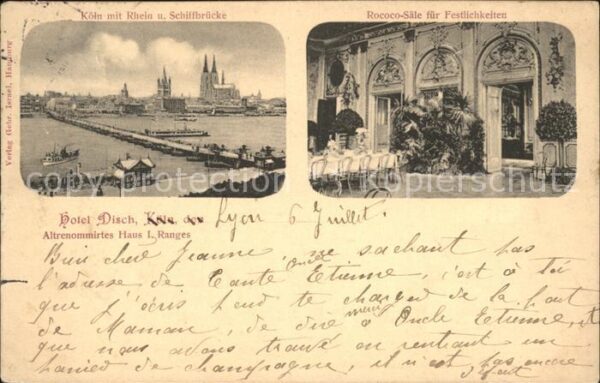 Köln mit Rhein u. Schiffbrücke
Rococo-Säle für Festlichkeiten
Verlag Gebr. Israel, Hamburg
copyright protected
copyright protected
Hotel Disch, Köln, den Lyon 6 Juillet.
Altrenommirtes Haus I. Ranges
Bien chère Jeanne ne sachant pas
l'adresse de Tante Etienne, c'est à toi
que j'écris pour te charger de la part
de Maman, de dire merci à Oncle Etienne, et
que nous avons trouvé en rentrant un
panier de champagne, il n'est pas encore